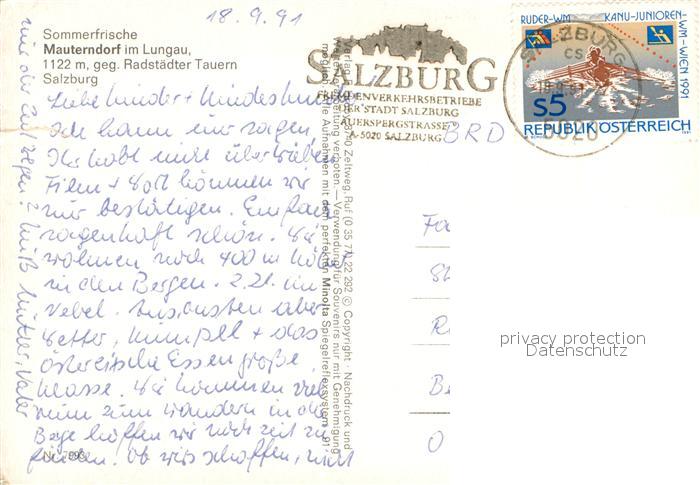 18.9.91
Sommerfrische
Mauterndorf im Lungau,
1122 m, geg. Radstädter Tauern
Salzburg
SALZBURG
FREMDENVERKEHRSBETRIEBE
DER STADT SALZBURG
AUERSPERGSTRASSE
A-5020 SALZBURG
RUDER-WM KANU-JUNIOREN-WM-WIEN 1991
S5
REPUBLIK ÖSTERREICH
SALZBURG
CS
5020
BRD
Liebe Kinder + Kindeskinder
ich kann nur sagen
Ihr habt nicht übertrieben
Film + Wort können wir
nur bestätigen. Einfach
sagenhaft schön. Wir
wohnen noch 400 m höher
in den Bergen. z.Zt. im
Nebel. Ansonsten aber
Wetter, + das
östereichische Essen große
Klasse. Wir kommen viel
rum zum wandern in die
Berge hoffen wir noch Zeit zu
finden. Ob wirs schaffen, wird
uns die Zeit zeigen? Gruß Mutter, Vater
Zeltweg, Ruf (0 35 77) 22 292 © Copyright Nachdruck und
verboten. – Verwendung für Souvenirs nur mit Genehmigung
Aufnahmen mit dem perfekten Minolta Spiegelreflexsystem 91
Fa
St
R
B
O
privacy protection
Datenschutz